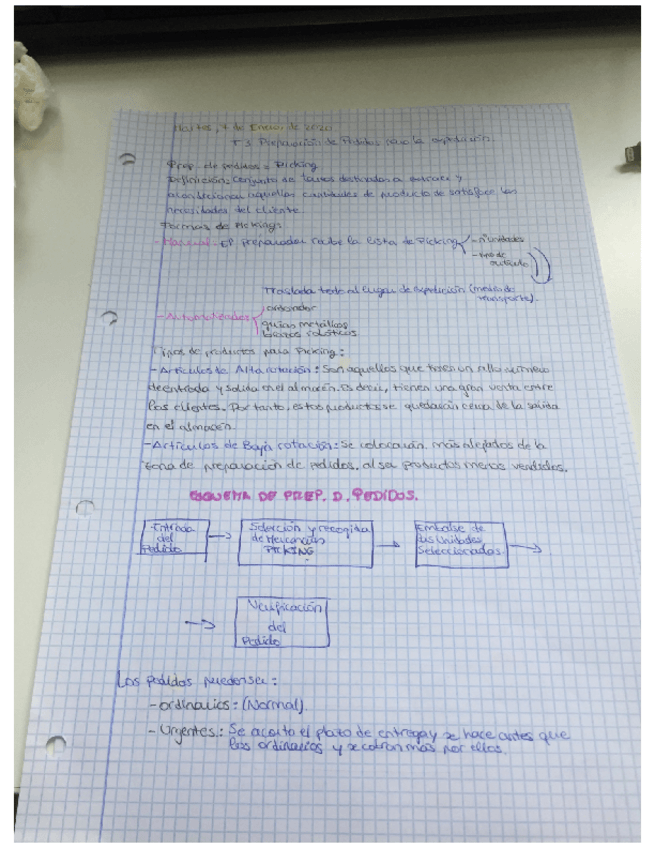 Martes, 7 de Enero, de 2020.
T 3 Preparación de Pedidos para la expedición.
Prep. de pedidos = Picking
Definición: Conjunto de tareas destinadas a extraer y
acondicionar aquellas cantidades de producto de satisface las
necesidades del cliente.
Formas de Pickings
- Manual: El preparador recibe la lista de Picking - nº unidades
- tipo de artículo
Traslada todo al lugar de expedición (medio de
transporte).
- Automatizados
guías metálicas
brazos robóticos
Tipos de productos para Picking:
- Artículos de Alta rotación: Son aquellos que tienen un alto número
de entrada y salida en el almacén. Es decir, tienen una gran venta entre
los clientes. Por tanto, estos productos se quedarán cerca de la salida
en el almacén.
- Artículos de Baja rotación: Se colocarán más alejados de la
zona de preparación de pedidos, al ser productos menos vendidos.
ESQUEMA DE PREP. D. PEDIDOS.
Entrada
del
Pedido
Selección y recogida
de Mercancías
PICKING
Embalse de
las Unidades
Seleccionadas
Verificación
del
Pedido
Los pedidos pueden ser:
- ordinarios: (Normal).
- Urgentes: Se acorta el plazo de entrega y se hace antes que
los ordinarios y se cobran más por ellos.